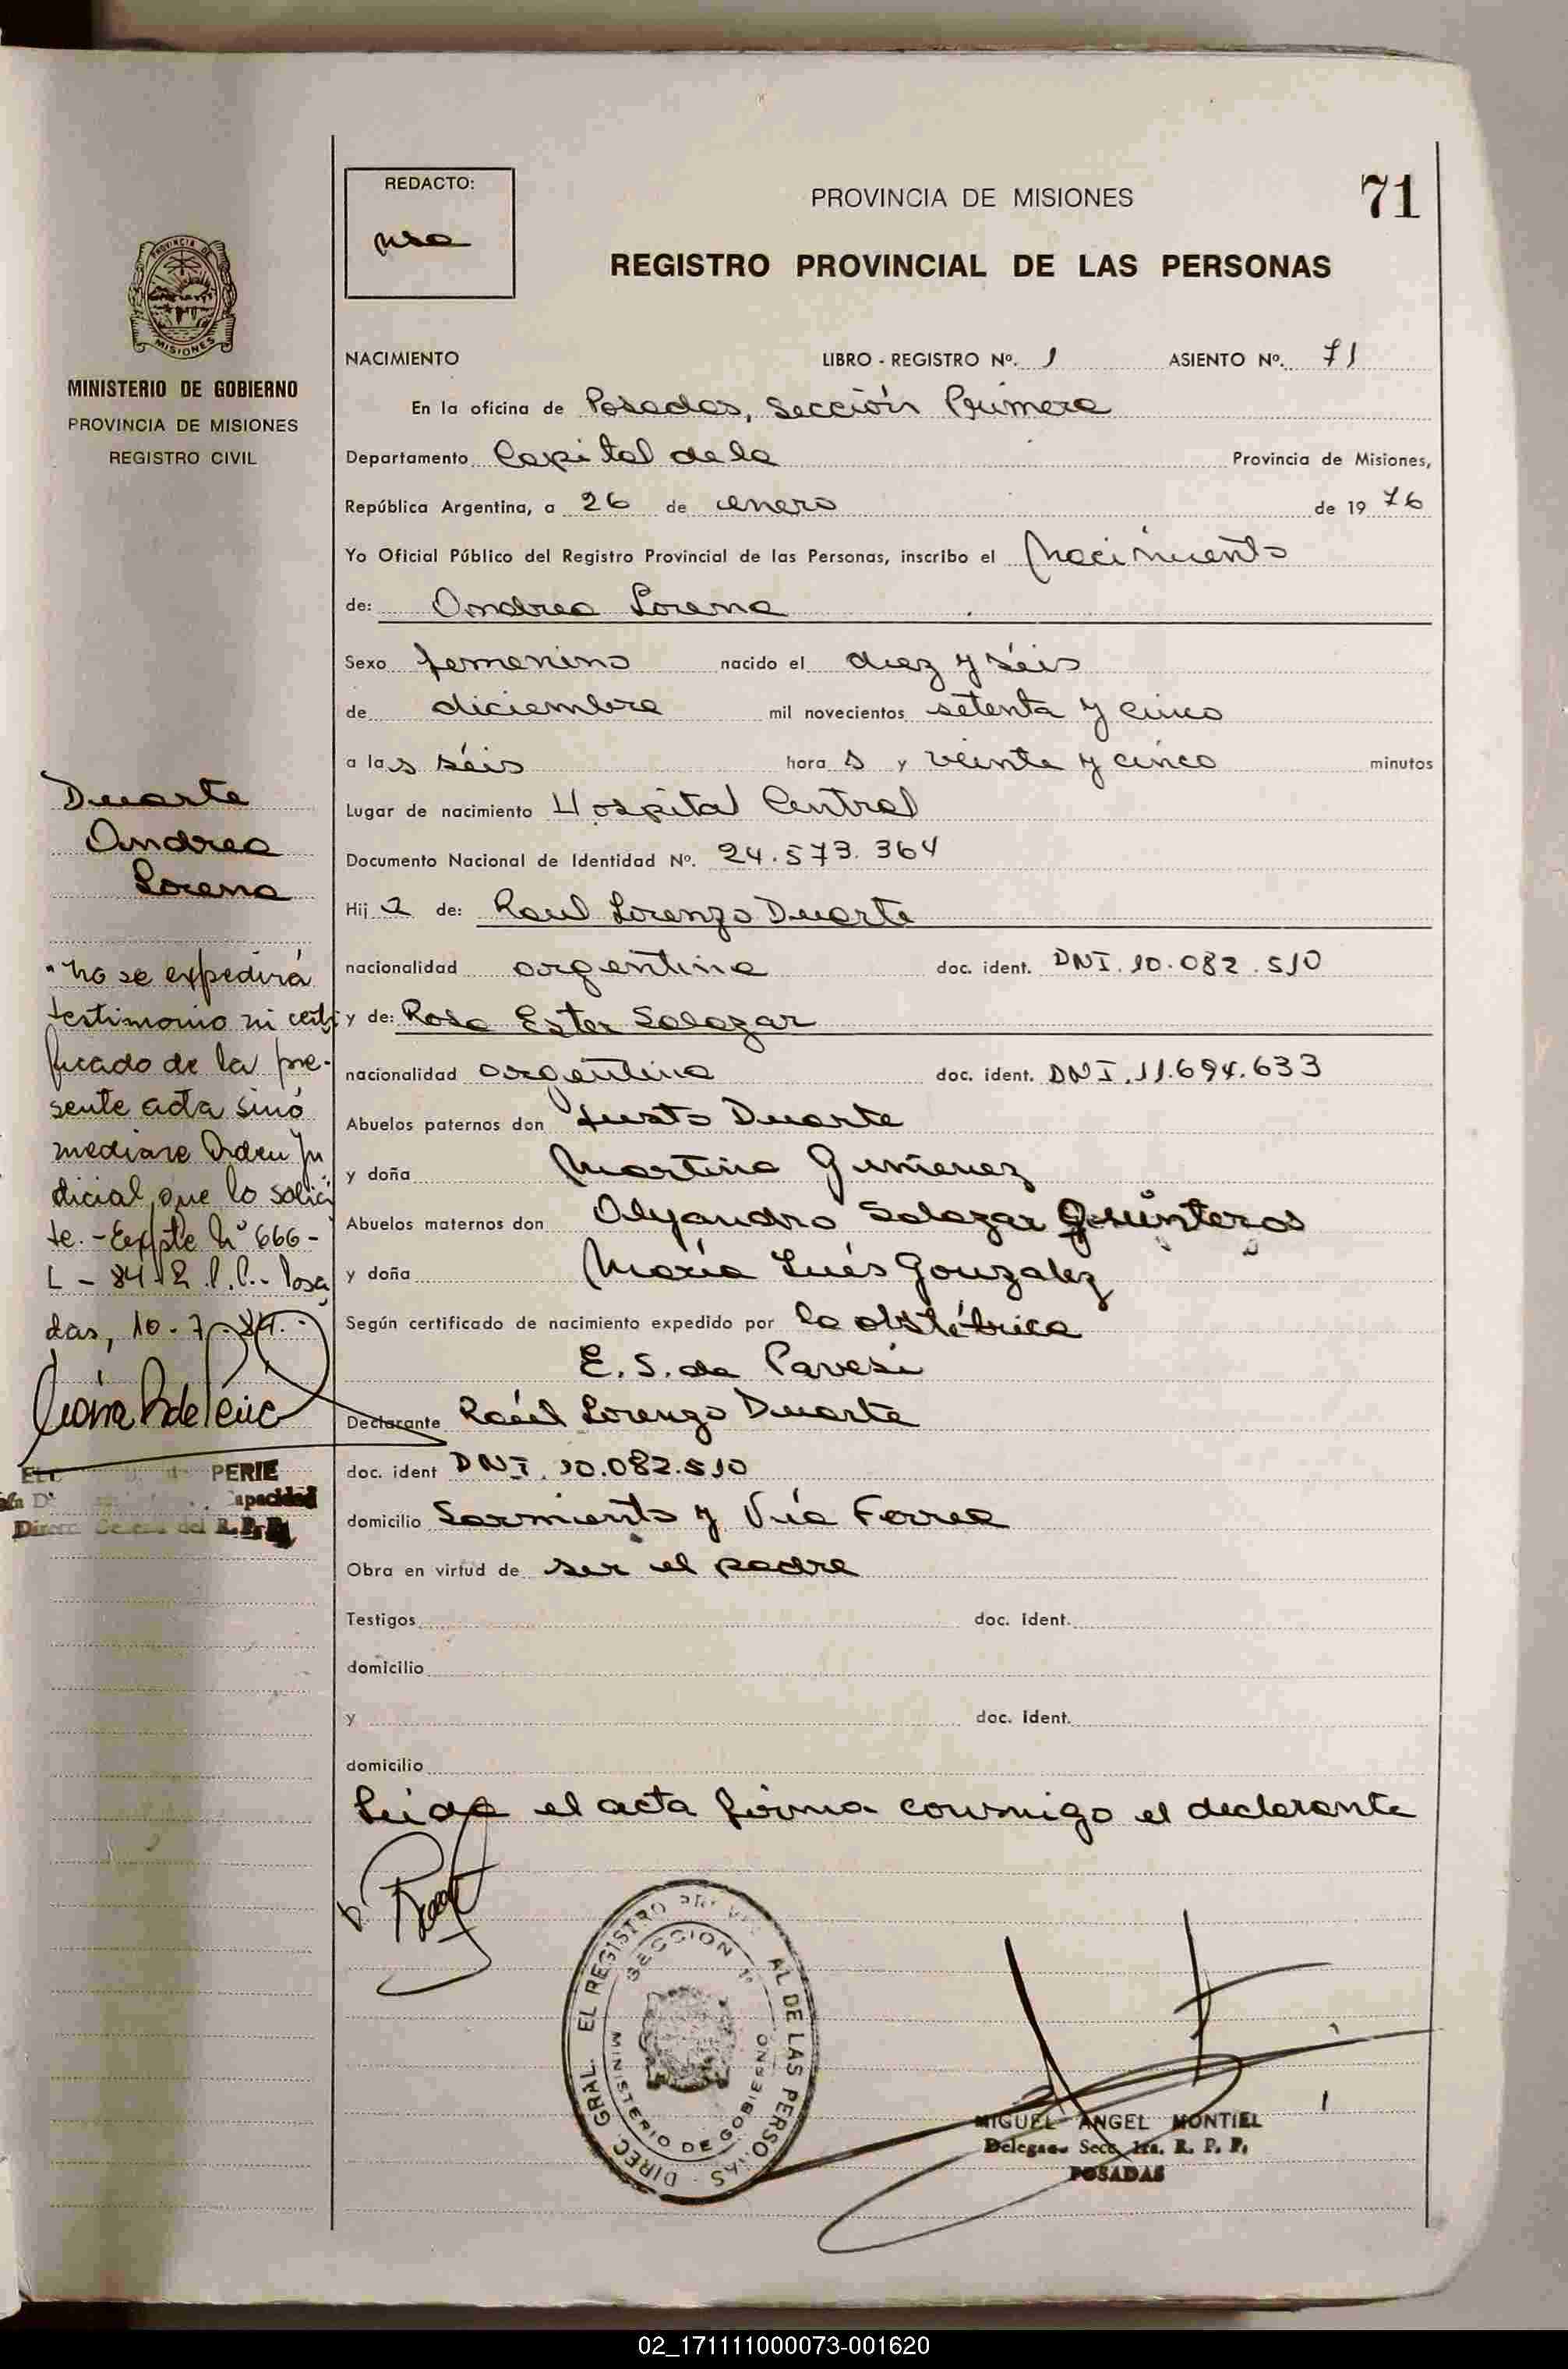 REDACTO:
PROVINCIA DE MISIONES
71
REGISTRO PROVINCIAL DE LAS PERSONAS
PROVINCIA DE
MISIONES
MINISTERIO DE GOBIERNO
PROVINCIA DE MISIONES
REGISTRO CIVIL
NACIMIENTO LIBRO - REGISTRO Nº. 1 ASIENTO Nº. 71
En la oficina de Posadas, Sección Primera
Departamento Capital de la Provincia de Misiones,
República Argentina, a 26 de enero de 1976
Yo Oficial Público del Registro Provincial de las Personas, inscribo el Nacimiento
de: Andrea Lorena
Sexo femenino nacido el diez y séis
de diciembre mil novecientos setenta y cinco
a las séis horas y veinte y cinco minutos
Lugar de nacimiento Hospital Central
Documento Nacional de Identidad Nº. 24.573.364
Hija de: Raul Lorenzo Duarte
nacionalidad argentina doc. ident. DNI. 10.082.510
y de: Rosa Ester Salazar
nacionalidad argentina doc. ident. DNI. 11.694.633
Abuelos paternos don Justo Duarte
y doña Martina Gimenez
Abuelos maternos don Alejandro Salazar
y doña María Inés Gonzalez
Según certificado de nacimiento expedido por la obstétrica
E. S. de Pavesi
Declarante Raúl Lorenzo Duarte
doc. ident DNI. 10.082.510
domicilio Sarmiento y Vía Ferrea
Obra en virtud de ser el padre
Testigos doc. ident.
domicilio
y doc. ident.
domicilio
Leida el acta firma conmigo el declarante
Duarte
Andrea
Lorena
"No se expedirá
testimonio ni certi
ficado de la pre-
sente acta sinó
mediare Orden Ju
dicial que lo solici
te. - Expte Nº 666-
L - 84 Posa
das, 10-7-84.
PERIE
apacidad
Direcc General del R.P.P.
DIREC. GRAL. EL REGISTRO PROVINCIAL DE LAS PERSONAS
SECCION 1ª
MINISTERIO DE GOBIERNO
MIGUEL ANGEL MONTIEL
Delegado Secc. 1ra. R. P. P.
POSADAS
02_171111000073-001620